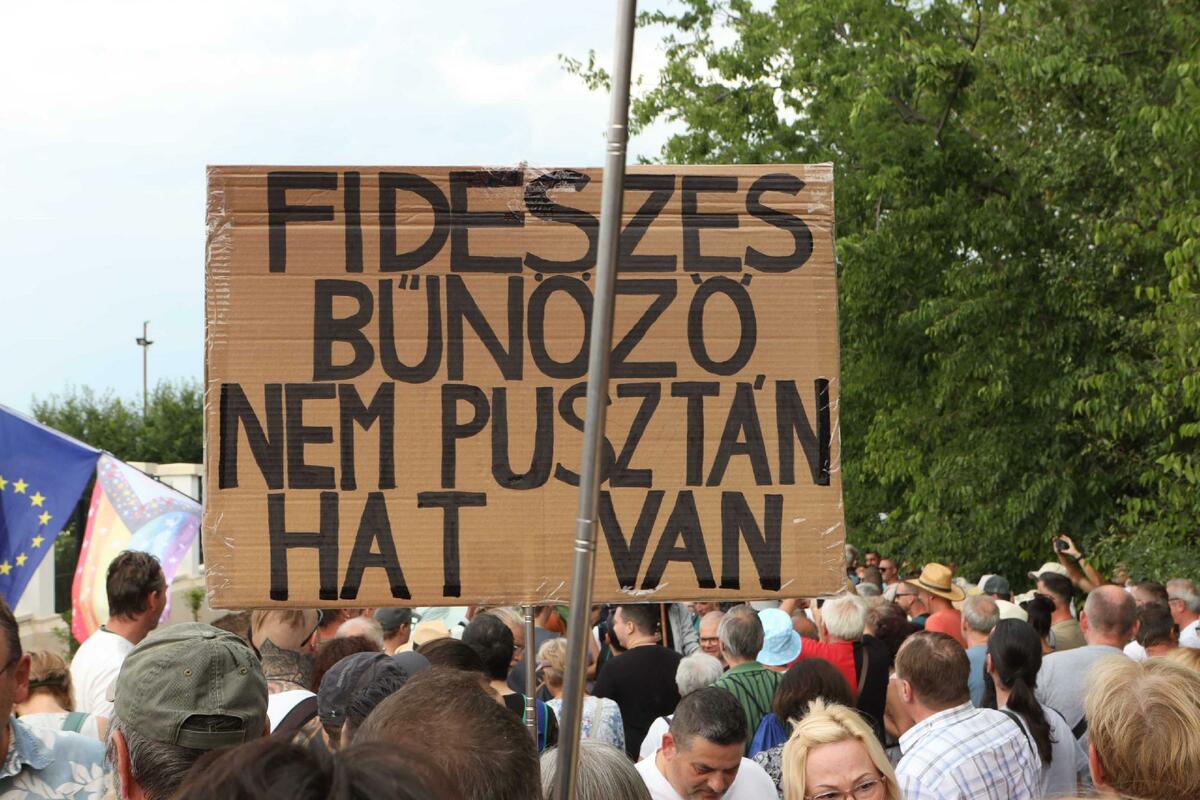 FIDESZES
BŰNÖZŐ
NEM PUSZTÁN
HAT VAN